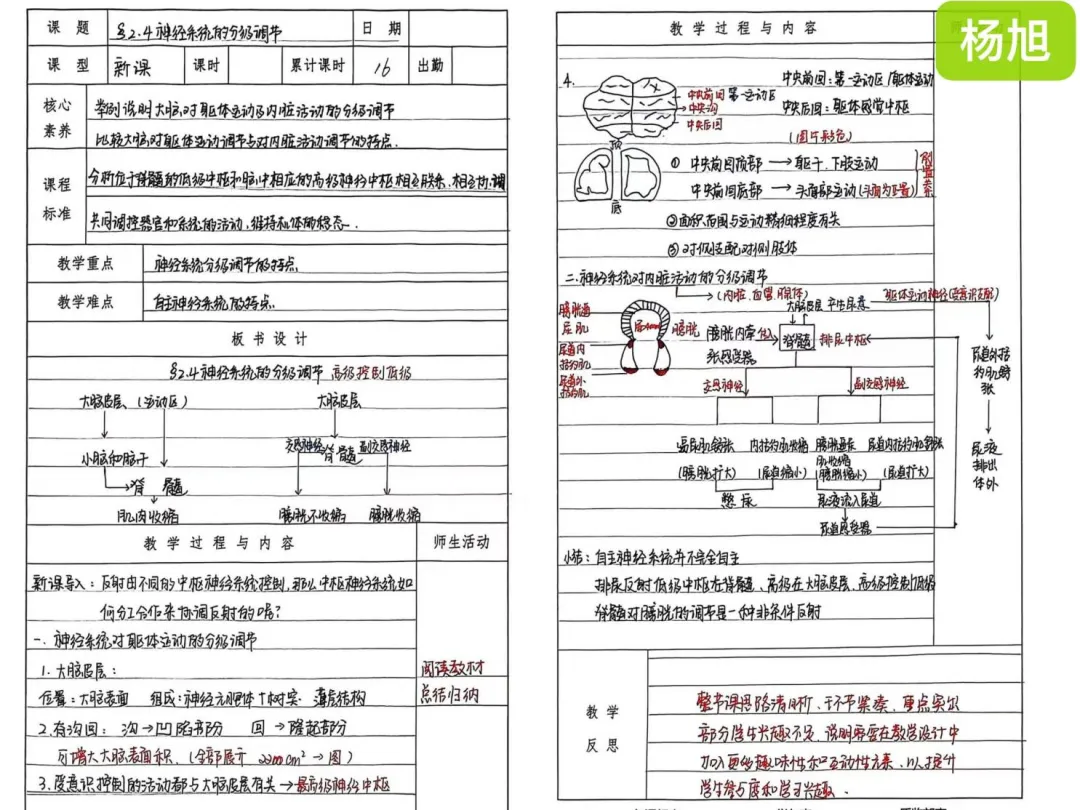 课 题 §2.4神经系统的分级调节 日 期
课 型 新课 课时 累计课时 16 出勤
核心素养 举例说明大脑对躯体运动及内脏活动的分级调节
比较大脑对躯体运动调节与对内脏活动调节的特点.
课程标准 分析位于脊髓的低级中枢和脑中相应的高级神经中枢相互联系、相互协调
共同调控器官和系统的活动,维持机体的稳态.
教学重点 神经系统分级调节的特点
教学难点 自主神经系统的特点.
板 书 设 计
§2.4神经系统的分级调节 高级控制低级
大脑皮层(运动区) 大脑皮层
小脑和脑干 交感神经 脊髓 副交感神经
脊 髓
肌肉收缩 膀胱不收缩 膀胱收缩
教 学 过 程 与 内 容 师生活动
新课导入:反射由不同的中枢神经系统控制,那么中枢神经系统如
何分工合作来协调反射的呢?
一、神经系统对躯体运动的分级调节
1.大脑皮层: 阅读教材
位置:大脑表面 组成:神经元胞体 树突 薄层结构 总结归纳
2.有沟回:沟→凹陷部分 回→隆起部分
可增大大脑表面积.(全部展开 →图)
3.受意识控制的活动都与大脑皮层有关→最高级神经中枢
杨旭
教 学 过 程 与 内 容
4. 中央前回:第一运动区/躯体运动
中央前回 第一运动区
中央沟
中央后回
中央后回:躯体感觉中枢
(图片彩色)
顶
底
① 中央前回顶部→躯干、下肢运动
中央前回底部→头面部运动(头面为正置)
②面积范围与运动精细程度有关
③对侧支配对侧肢体
二.神经系统对内脏活动的分级调节
(内脏、血管、腺体)
大脑皮层 产生尿意 躯体运动神经(受意识支配)
膀胱逼尿肌
尿道内括约肌
尿道外括约肌
膀胱 膀胱内牵张感受器
脊髓 排尿中枢
尿道外括约肌舒张
尿液排出体外
交感神经 副交感神经
逼尿肌舒张 内括约肌收缩 膀胱逼尿肌收缩 尿道内括约肌舒张
(膀胱扩大) (尿道缩小) (膀胱缩小) (尿道扩大)
憋 尿 尿液流入尿道
尿道感受器
小结:自主神经系统并不完全自主
排尿反射低级中枢在脊髓、高级在大脑皮层、高级控制低级
脊髓对膀胱的调节是一种非条件反射
教 学 反 思
整节课思路清晰、环节紧凑、重点突出
部分学生兴趣不足,说明需要在教学设计中
加入更多趣味性和互动性元素,以提升
学生参与度和学习兴趣.